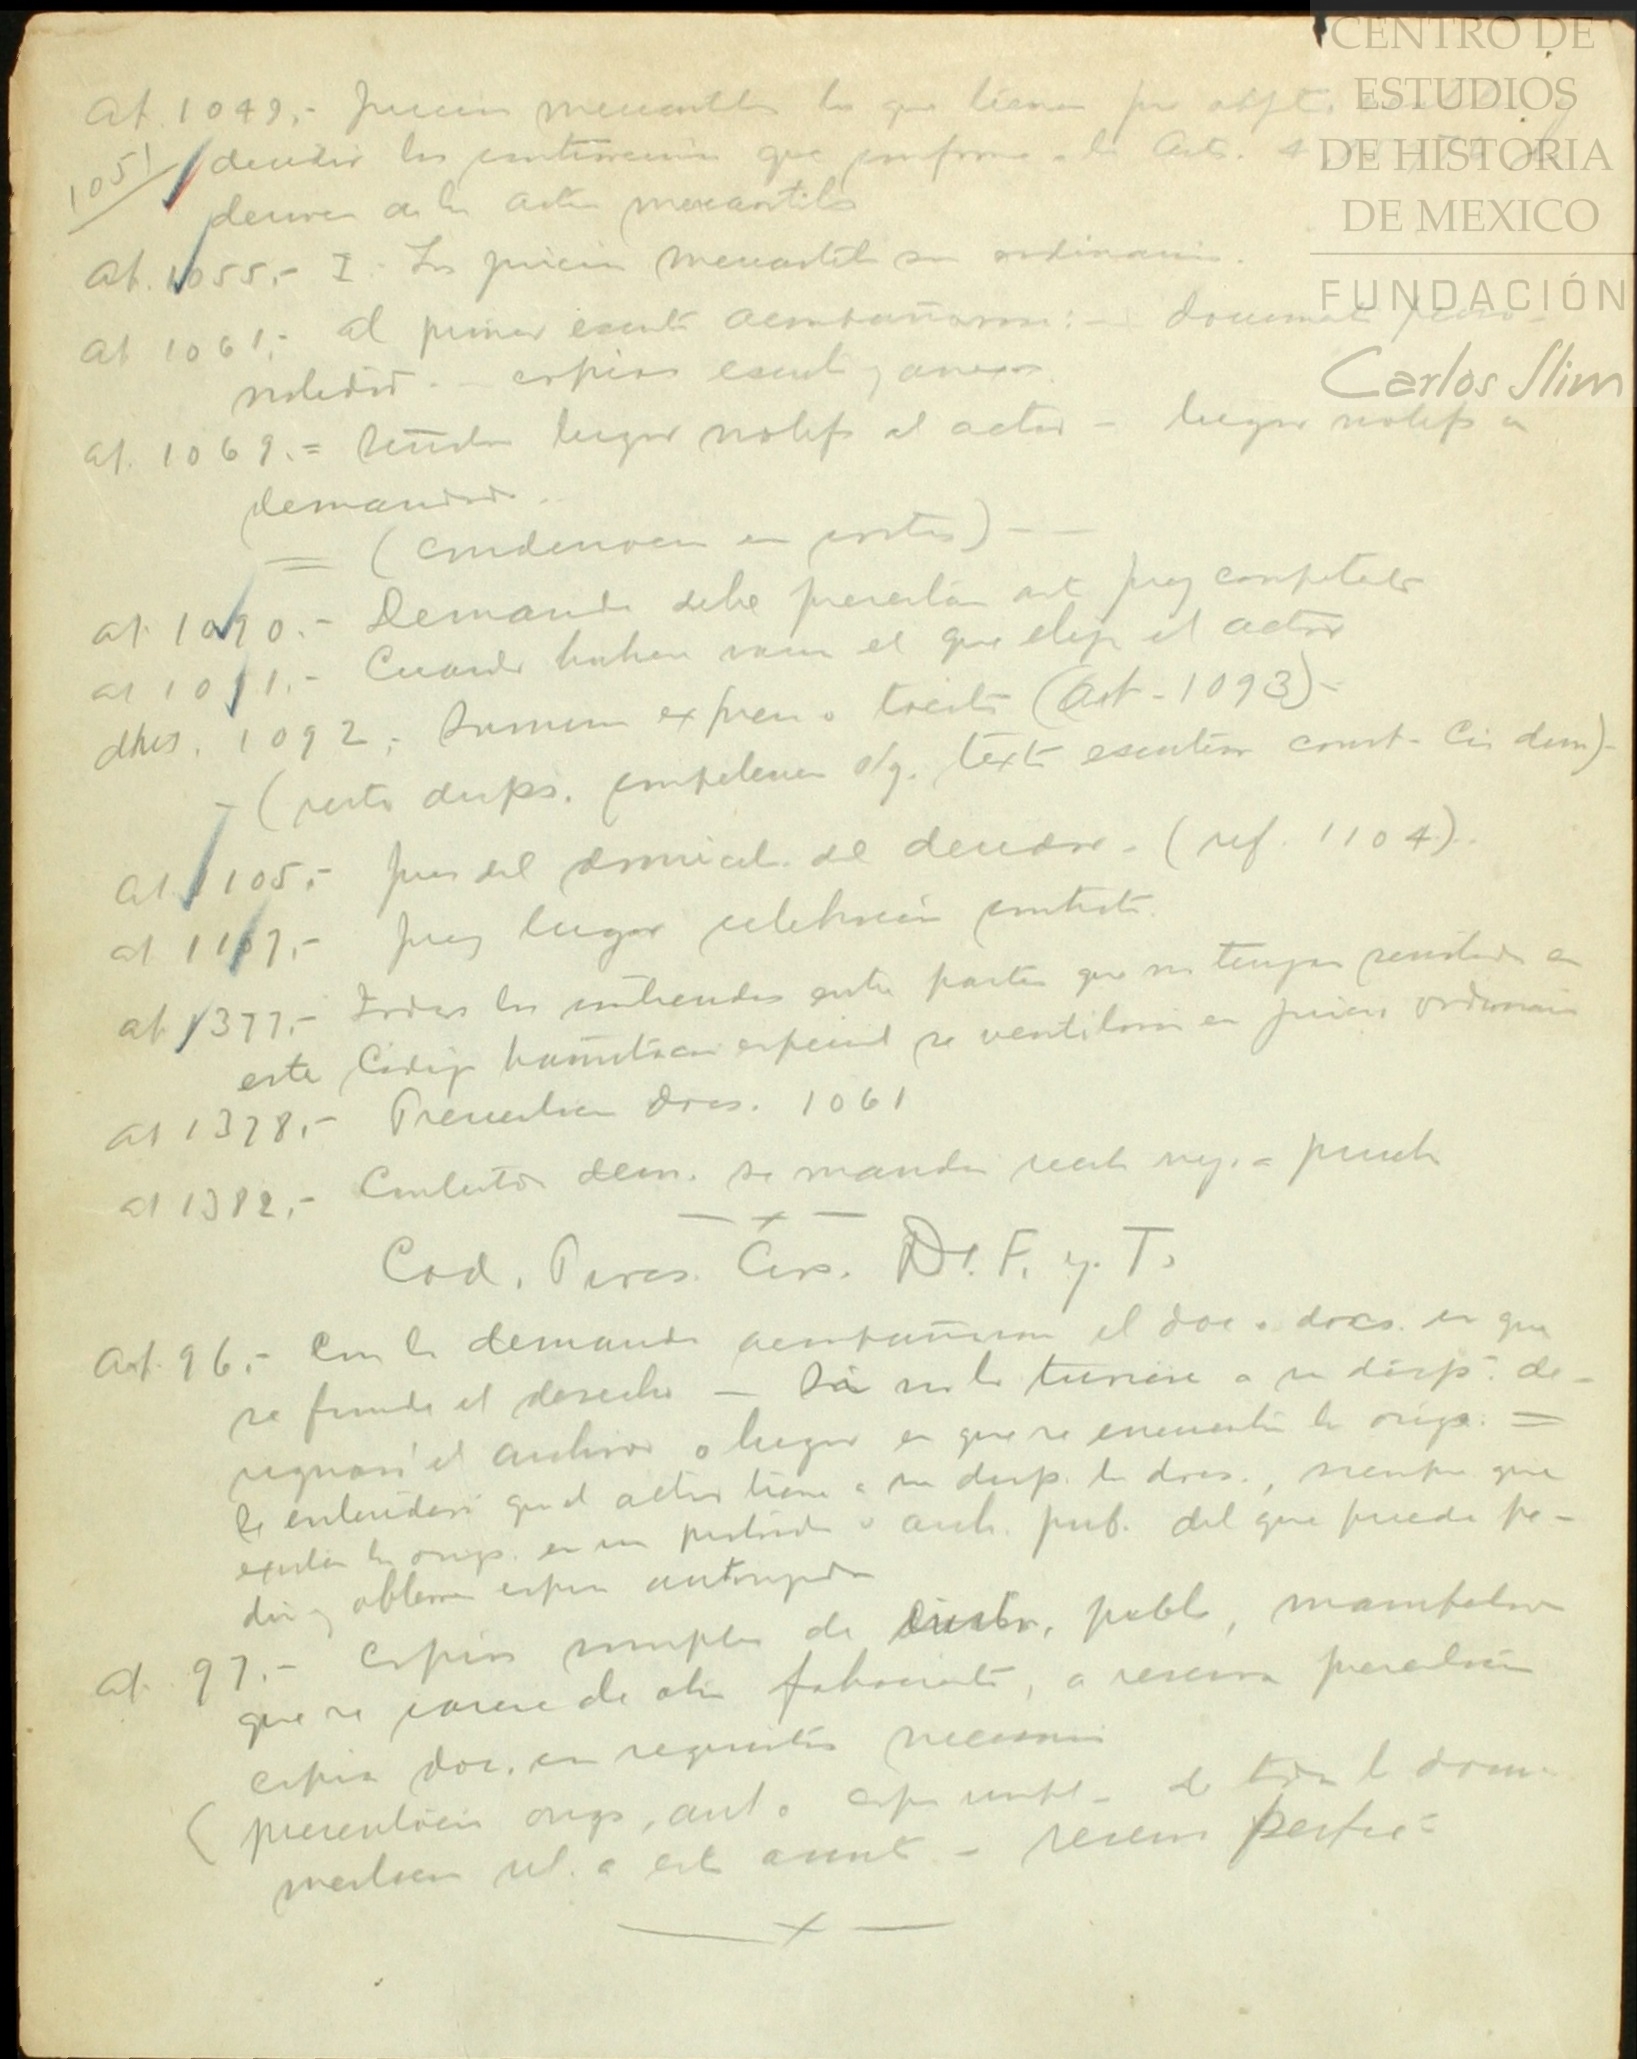 CENTRO DE
ESTUDIOS
DE HISTORIA
DE MEXICO
FUNDACIÓN
Carlos Slim
Art. 1049.- Juicios mercantiles los que tienen por objeto
1051
decidir las controversias que conforme a los Arts. 4
deriven de los actos mercantiles
Art. 1055.- I.- Los juicios mercantiles son ordinarios.
Art 1061.- Al primer escrito acompañarán: - documento
- copias escrito y anexos.
Art. 1069.= Señalar lugar notifs al actor - lugar notifs a
demandado.
= (condenación en costas) - -
Art 1090.- Demanda debe presentarse ante juez competente
Art 1091.- Cuando hubiere varios el que elija el actor
1092.- Sumisión expresa o tácita (Art- 1093)-
- (resto disps. competencia texto
Art 1105.- Juez del domicilio del deudor - (ref. 1104).
Art 1107.- Juez lugar celebración contrato.
Art 1377.- Todas las contiendas entre partes que no tengan señalada en
este Código tramitación especial se ventilarán en juicio ordinario
Art 1378.- Presentación docs. 1061
Art 1382.- Contestada dem. se mandará recibir neg. a prueba
— x —
Cod. Procs. Civs. D. F. y T.
Art. 96.- Con la demanda acompañarán el doc o docs. en que
se funde el derecho - Si no lo tuviere a su disp. de-
signará el archivo o lugar en que se encuentren los origs. =
Se entenderá que el actor tiene a su disp. los docs., siempre que
existan los origs. en un protocolo o arch. pub. del que pueda pe-
dir y obtener copia autorizada
Art. 97.- Copias simples de public, manifestando
que se carece de otra fehaciente, a reserva presentación
copia doc. con requisitos necesarios
(presentación origs, aut. o copia simple - de toda la docu-
mentación rel. a este asunto - reserva
— x —